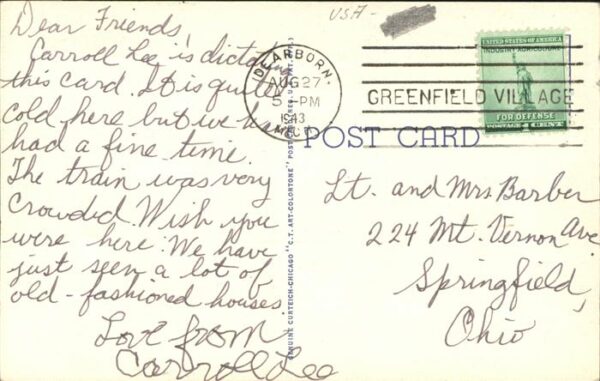 USA-
Dear Friends,
Carroll Lee is dictating
this card. It is quite
cold here but we have
had a fine time.
The train was very
crowded. Wish you
were here. We have
just seen a lot of
old-fashioned houses.
Love from
Carroll Lee
GENUINE CURTEICH-CHICAGO "C.T. ART-COLORTONE" POST CARD (REG. U.S. PAT. OFF.)
DEARBORN,
AUG 27
5 - PM
1943
MICH.
GREENFIELD VILLAGE
UNITED STATES OF AMERICA
INDUSTRY AGRICULTURE
FOR DEFENSE
POSTAGE 1 CENT
POST CARD
Lt. and Mrs. Barber
224 Mt. Vernon Ave.
Springfield,
Ohio